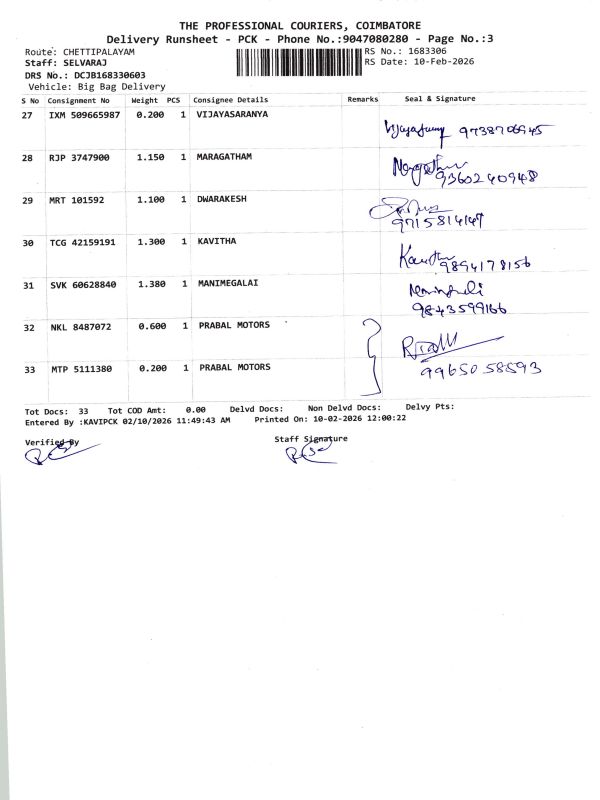 THE PROFESSIONAL COURIERS, COIMBATORE
Delivery Runsheet - PCK - Phone No.:9047080280 - Page No.:3
Route: CHETTIPALAYAM RS No.: 1683306
Staff: SELVARAJ RS Date: 10-Feb-2026
DRS No.: DCJB168330603
Vehicle: Big Bag Delivery
S No Consignment No Weight PCS Consignee Details Remarks Seal & Signature
27 IXM 509665987 0.200 1 VIJAYASARANYA
9738706945
28 RJP 3747900 1.150 1 MARAGATHAM
9360240948
29 MRT 101592 1.100 1 DWARAKESH
9715814147
30 TCG 42159191 1.300 1 KAVITHA
9894178156
31 SVK 60628840 1.380 1 MANIMEGALAI
9843599166
32 NKL 8487072 0.600 1 PRABAL MOTORS
33 MTP 5111380 0.200 1 PRABAL MOTORS
9965058593
Tot Docs: 33 Tot COD Amt: 0.00 Delvd Docs: Non Delvd Docs: Delvy Pts:
Entered By :KAVIPCK 02/10/2026 11:49:43 AM Printed On: 10-02-2026 12:00:22
Verified By Staff Signature